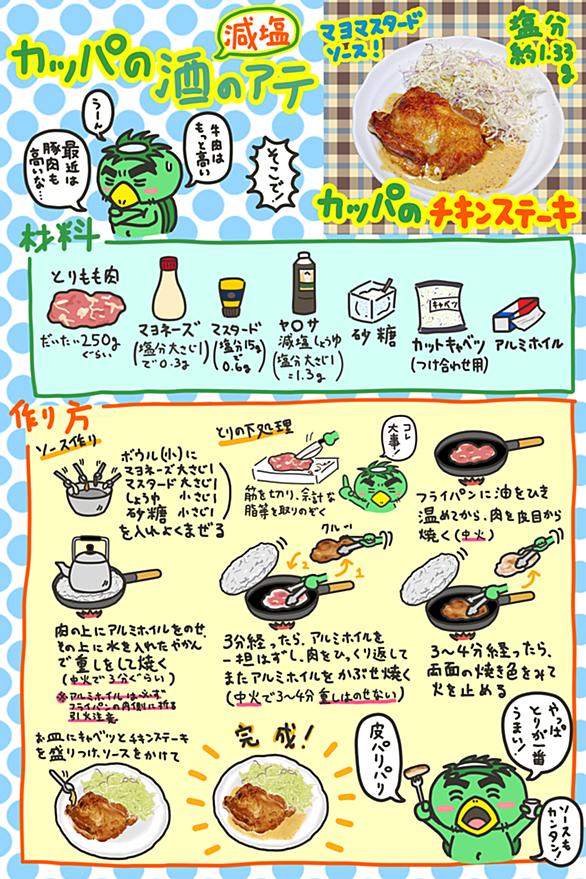 カッパの
減塩
酒のアテ
マヨマスタード
ソース！
塩分
約1.33
g
カッパのチキンステーキ
うーん
最近は
豚肉も
高いな…
牛肉は
もっと高い
そこで！
材料
とりもも肉
だいたい250g
ぐらい
マヨネーズ
(塩分大さじ1
で0.3g)
マスタード
(塩分15g
で
0.6g)
ヤ〇サ
減塩しょうゆ
(塩分大さじ1
=1.3g)
砂糖
キャベツ
カットキャベツ
(つけ合わせ用)
アルミホイル
作り方
ソース作り
ボウル(小)に
マヨネーズ 大さじ1
マスタード 大さじ1
しょうゆ 小さじ1
砂糖 小さじ1
を入れよくまぜる
とりの下処理
コレ
大事！
筋を切り、余計な
脂等を取りのぞく
フライパンに油をひき
温めてから、肉を皮目から
焼く(中火)
肉の上にアルミホイルをのせ、
その上に水を入れたやかん
で重しをして焼く
(中火で3分ぐらい)
※アルミホイルは必ず
フライパンの内側に折る
引火注意
クルッ
2
1
3分経ったら、アルミホイルを
一担はずし、肉をひっくり返して
またアルミホイルをかぶせ焼く
(中火で3〜4分 重しはのせない)
3〜4分経ったら、
両面の焼き色をみて
火を止める
お皿にキャベツとチキンステーキ
を盛りつけ、ソースをかけて
完成！
皮パリパリ
やっぱ
とりが一番
うまい！
ソースも
カンタン！